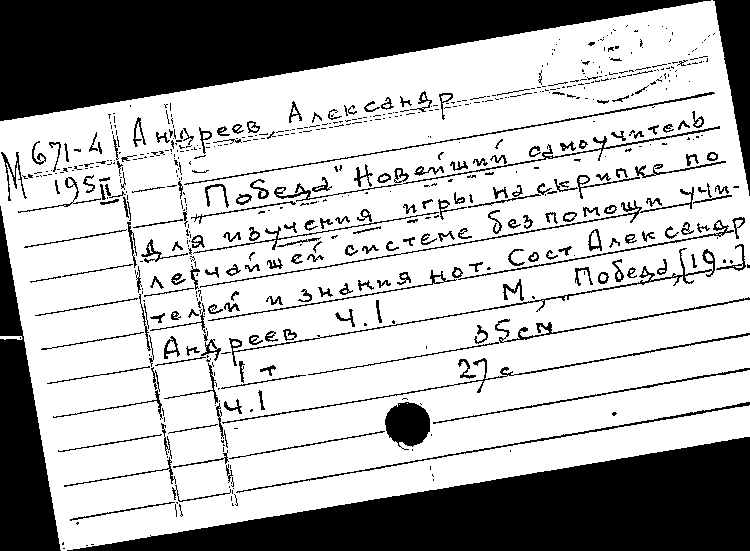 М 671-4
195 II
Андреев, Александр
„Победа" Новейший самоучитель
для изучения игры на скрипке по
легчайшей системе без помощи учи-
телей и знания нот. Сост Александр
Андреев. Ч.1. М., „Победа, [19..].
1 т 35 см
ч.1 27 с